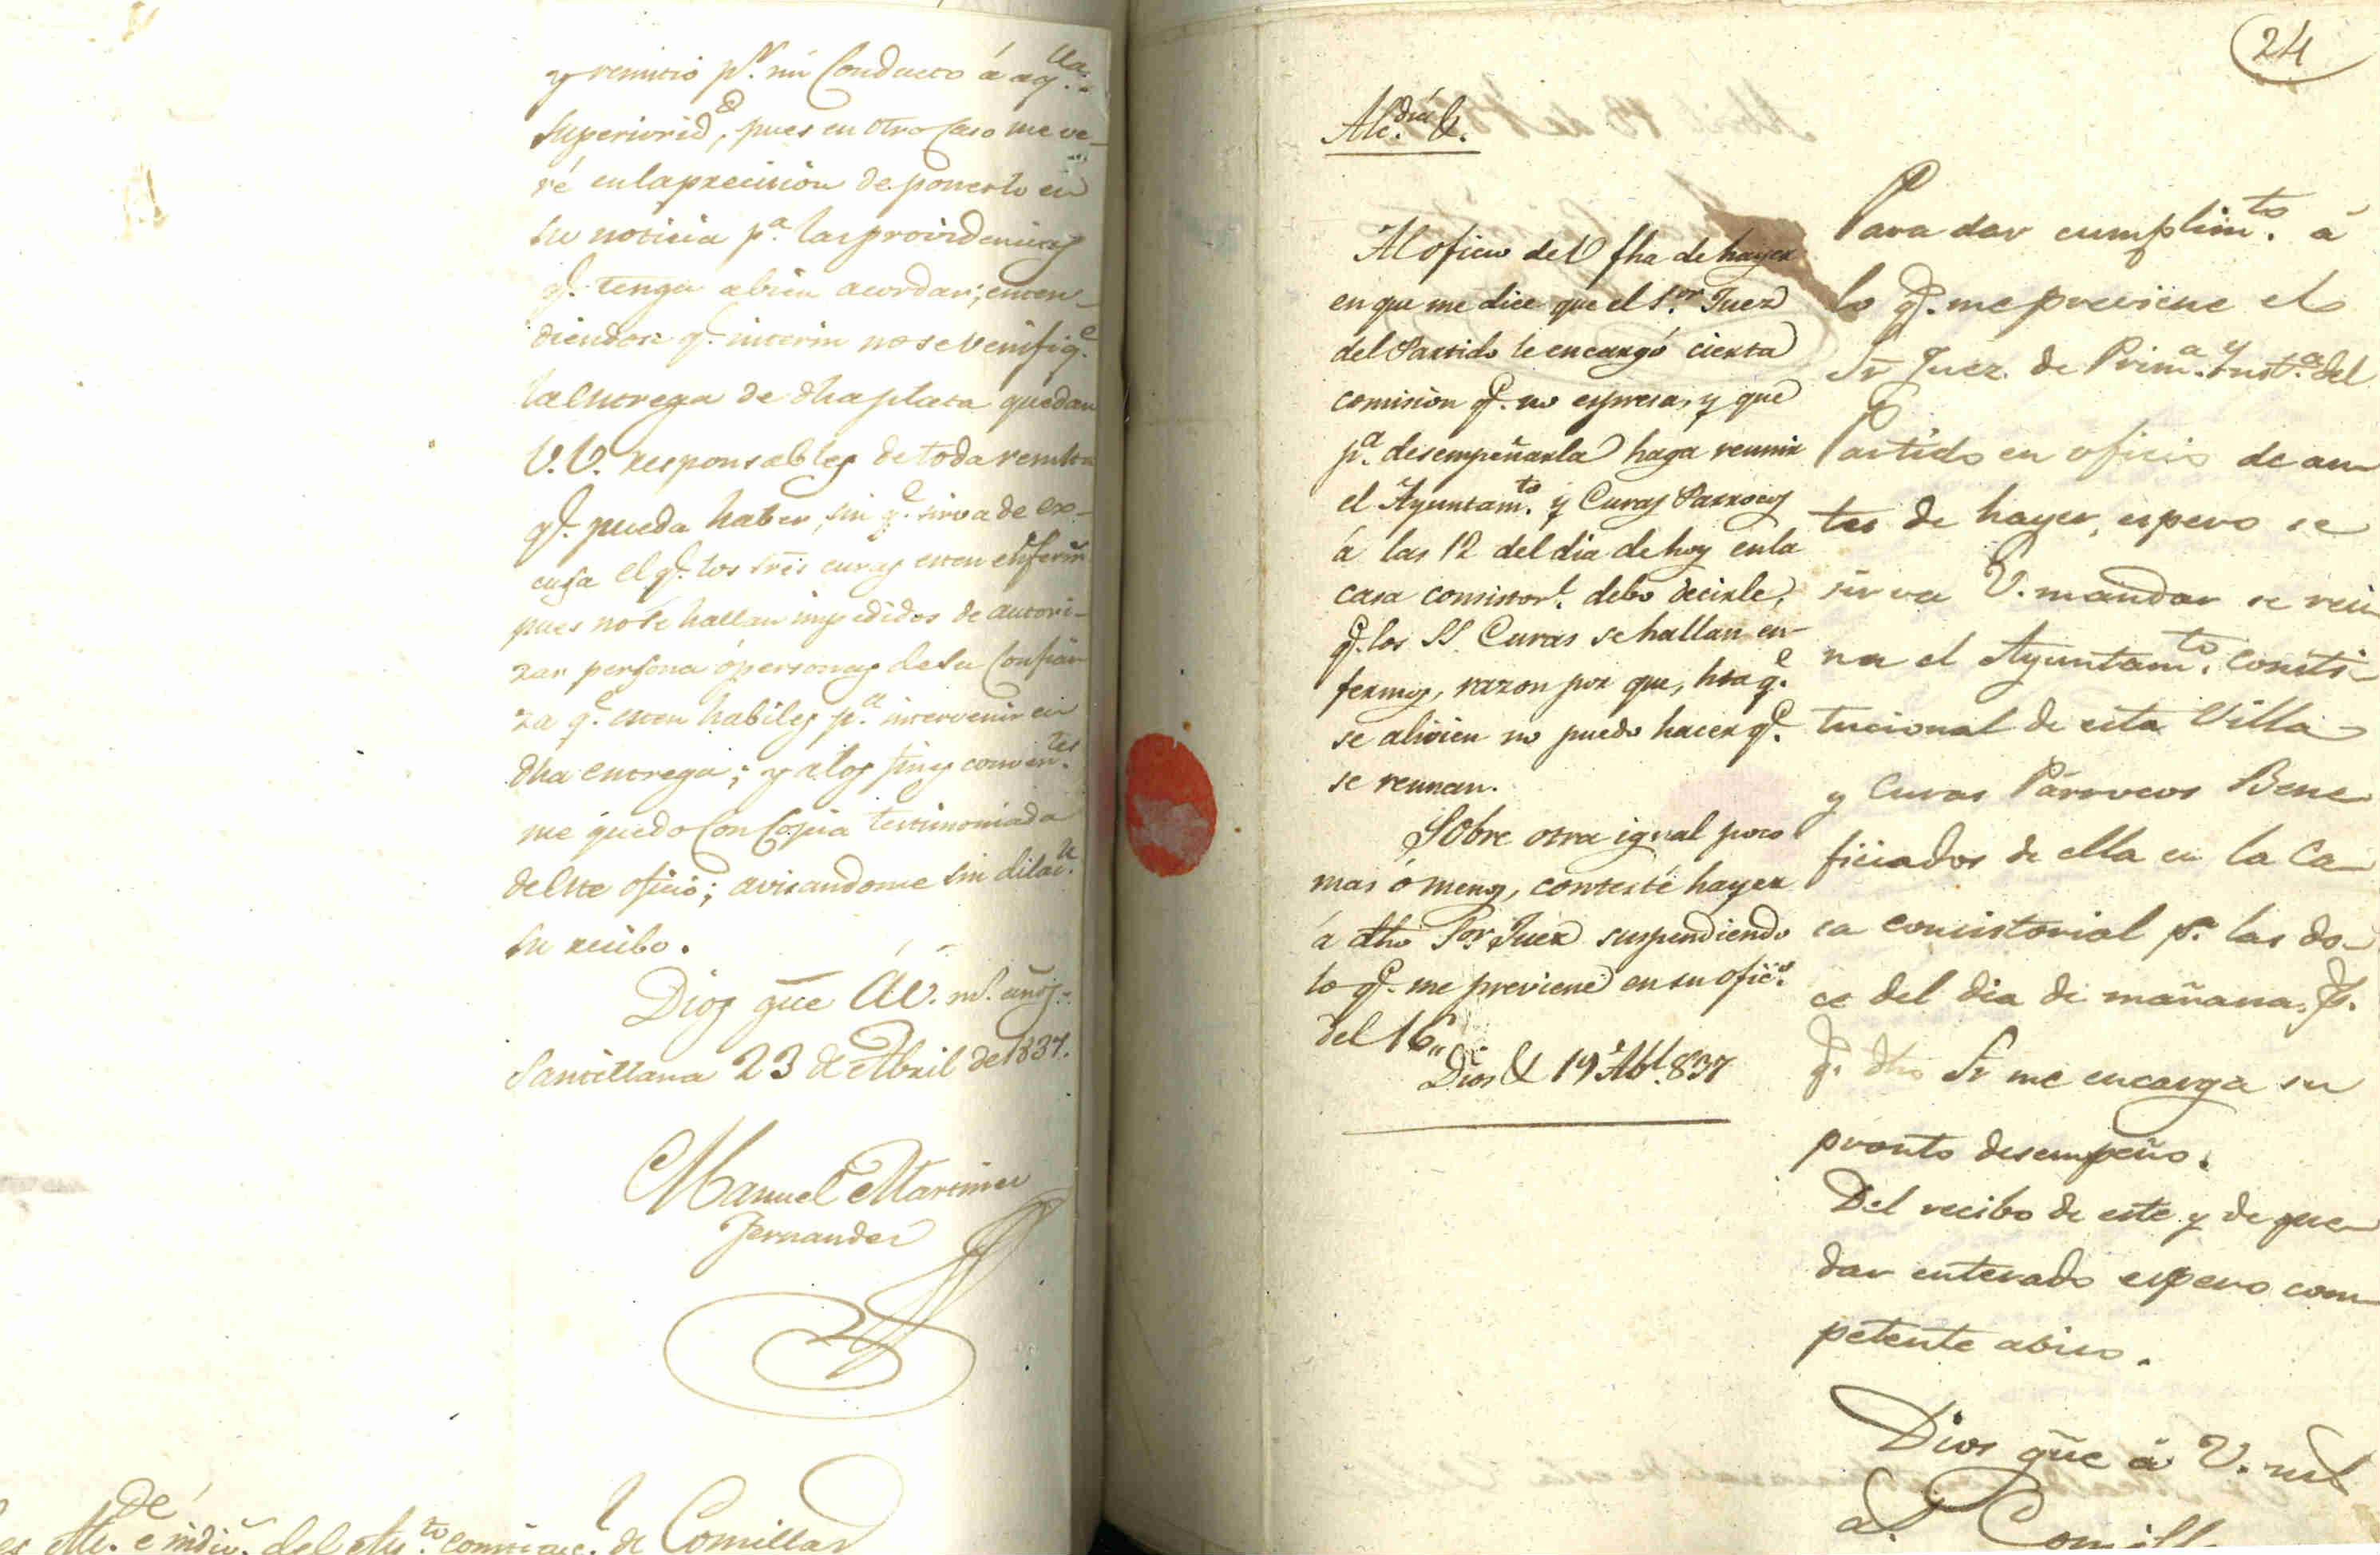 y remitió pr. mi Conducto á aqlla.
Superioridd, pues en otro Caso me ve-
ré en la precision de ponerlo en
su noticia pa. las providencias
qe. tenga abien acordar; enten-
diendose qe. interin no se verifiqe
la entrega de dha plata quedan
V.V. responsables de toda resulta
qe. pueda haber, sin qe. sirva de ex-
cusa el qe. los Sres curas esten enferms
pues no se hallan impedidos de autori-
zar persona ó personas de su Confian
za qe. esten habiles pa. intervenir en
dha entrega; y a los fines convente.
me quedo Con Copia testimoniada
de este oficio; avisandome sin dilacn.
su recibo.
Dios gue á V. ms. añosˢ.
Santillana 23 de Abril de 1837.
Manuel Martinez
Fernandez
Alde. é indiv. del Ayto. constituc.l de Comillas
24
Alcdia. &.
Al oficio del fha de hayer
en que me dice que el Sor. Juez
del Partido le encargó cierta
comision qe. no espresa, y que
pa. desempeñarla haga reunir
el Ayuntamto. y Curas Parrocos
á las 12 del dia de hoy en la
casa consistorl. debo decirle,
qe. los SS. Curas se hallan en-
fermos, razon por que, hta qe.
se alivien no puedo hacer qe.
se reunan.
Sobre otra igual poco
mas ó menos, contesté hayer
á dho Sor. Juez suspendiendo
lo qe. me previene en su ofico.
del 16,,
Dios & 19 Abl. 837
Para dar cumplimto. á
lo qe. me previene el
Sr Juez de Prima. Ynsta. del
Partido en oficio de an-
tes de hayer, espero se
sirva V. mandar se reu
na el Ayuntamto. consti-
tucional de esta Villa
y Curas Párrocos Bene
ficiados de ella en la Ca
sa consistorial pa. las do-
ce del dia de mañana, pr.
qe. dho Sr me encarga su
pronto desempeño.
Del recibo de este y de que-
dar enterado espero com-
petente abiso.
Dios gue á V. ms
as. Comill